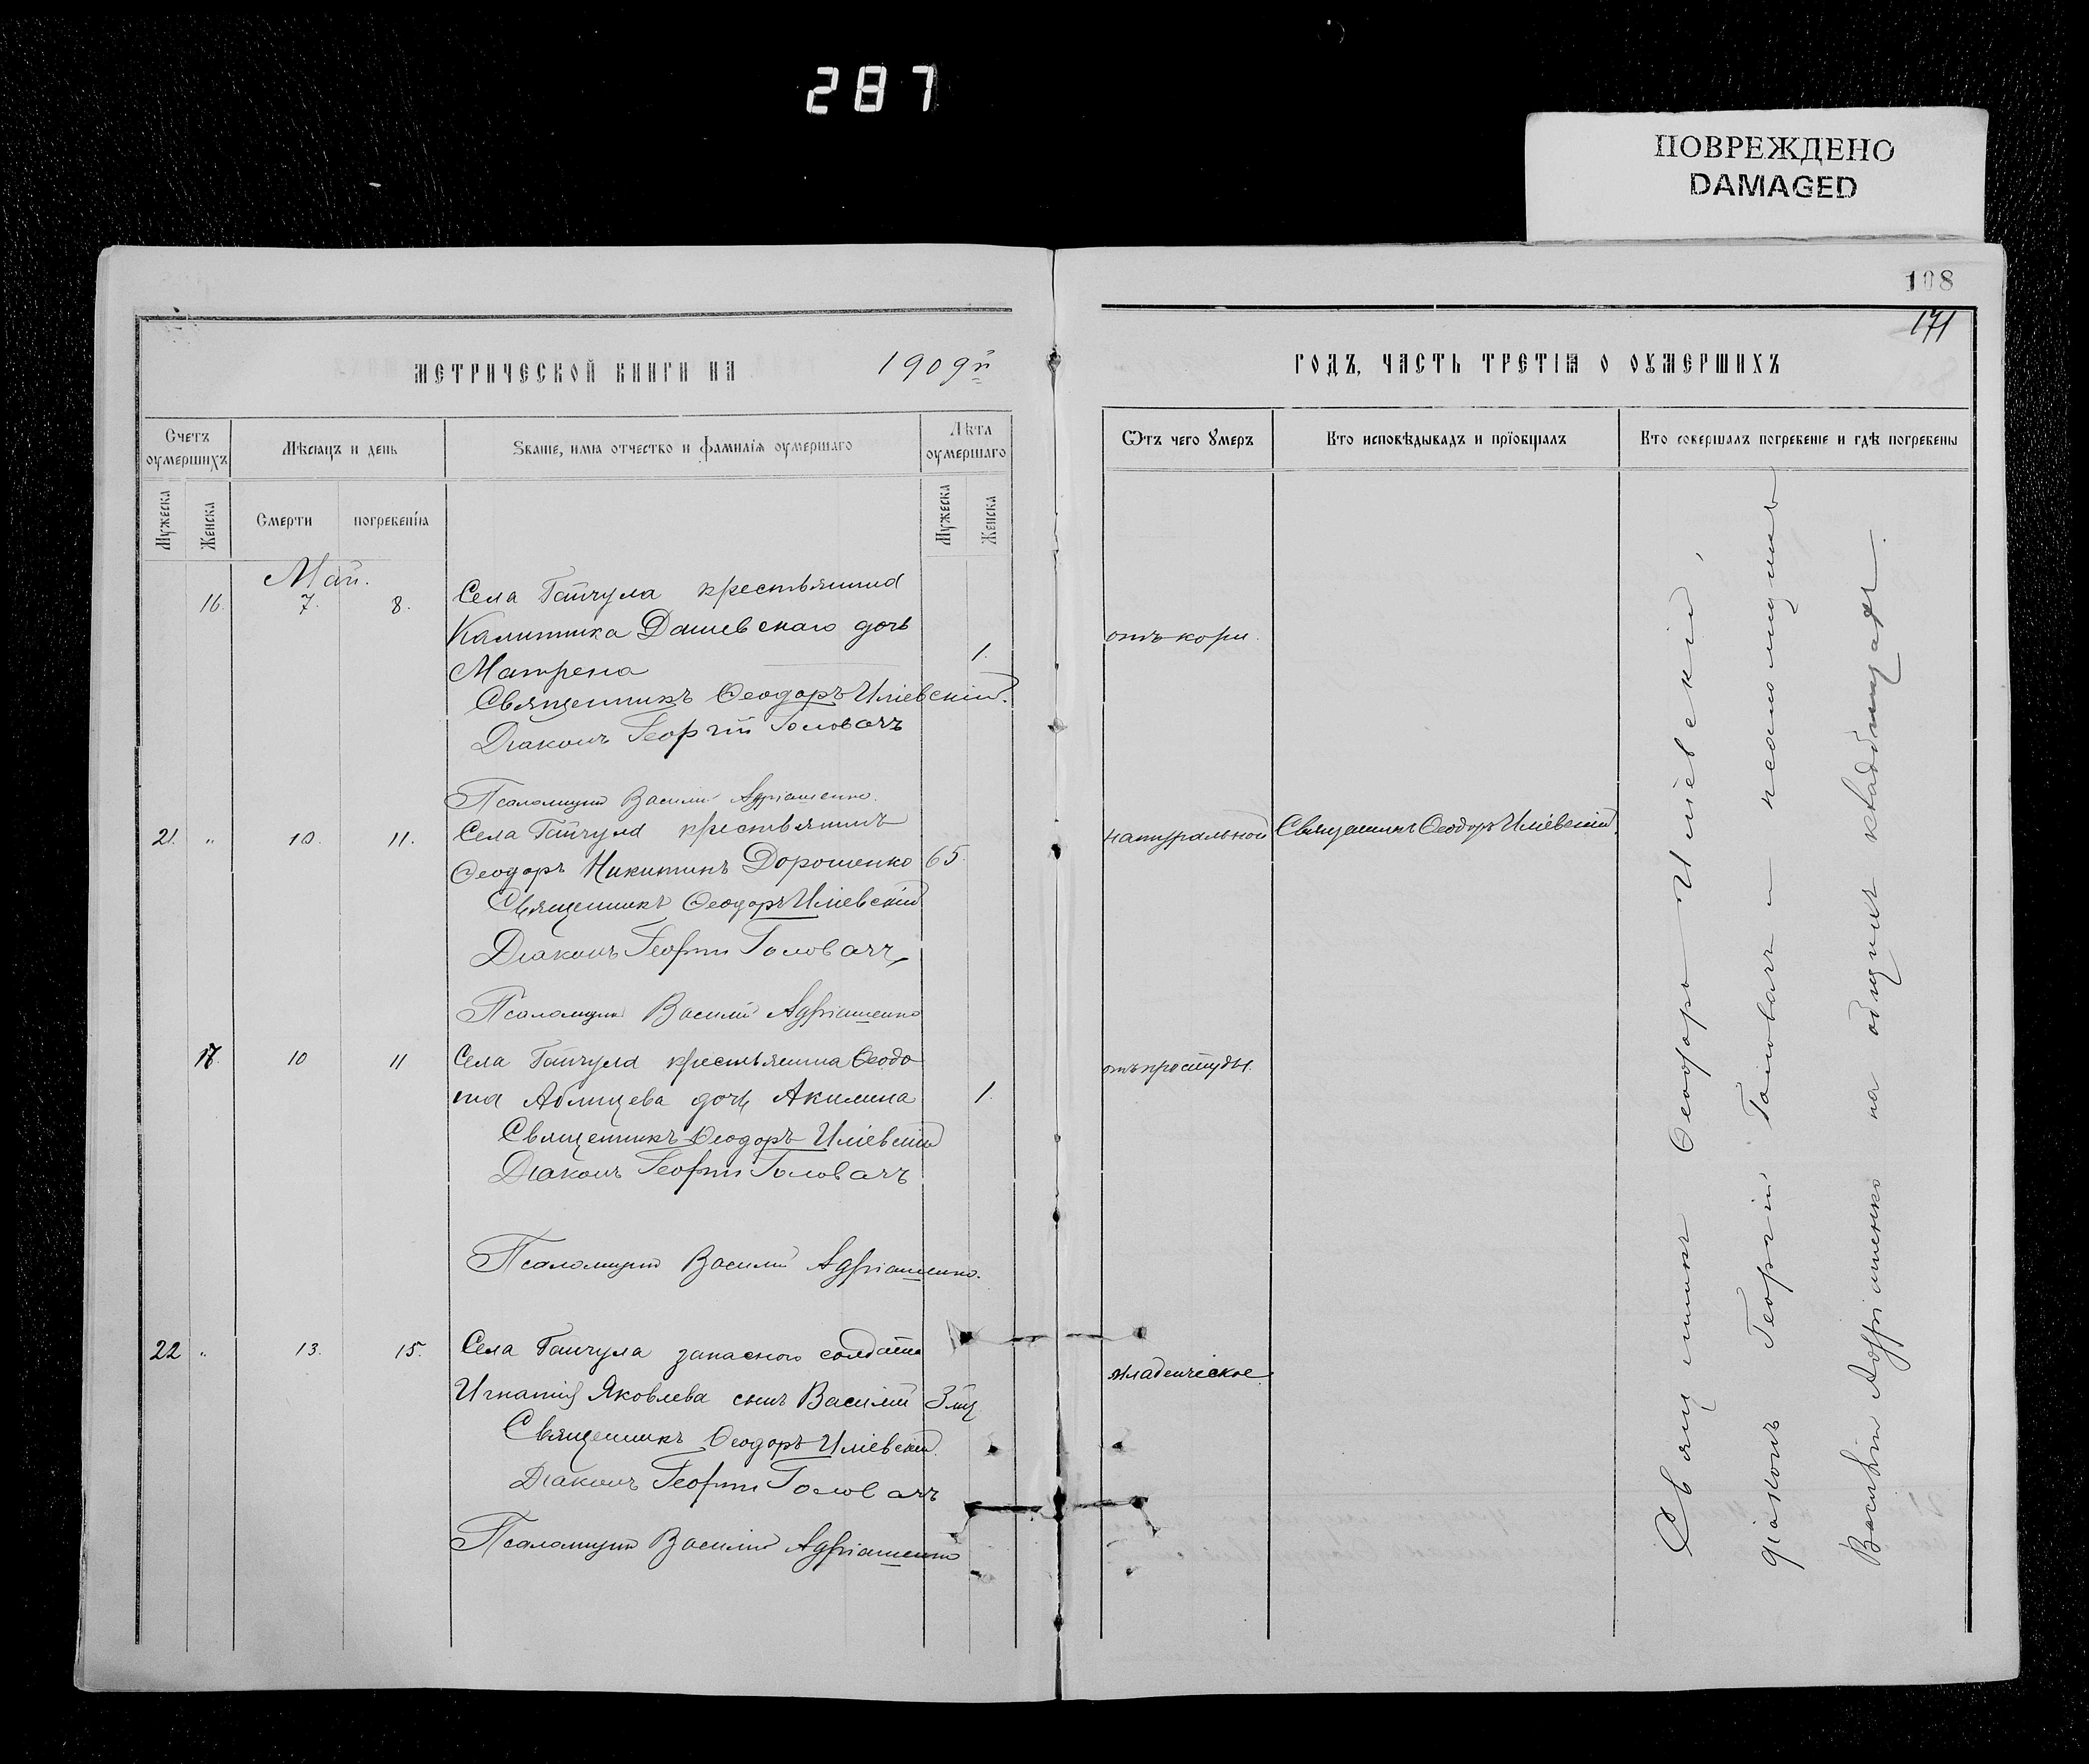 287
ПОВРЕЖДЕНО
DAMAGED
108
171
МЕТРИЧЕСКОЙ КНИГИ НА 1909й
ГОДЪ, ЧАСТЬ ТРЕТІѦ О ОУМЕРШИХЪ
Счетъ оумершихъ
Мѣсяцъ и день
Званіе, имя отчество и фамилія оумершаго
Лѣта оумершаго
Мужеска
Женска
Смерти
погребенія
Мужеска
Женска
Ѿтъ чего оумеръ
Кто исповѣдывадъ и пріобщалъ
Кто совершалъ погребеніе и гдѣ погребены
Май.
16. 7. 8. Села Гайчула крестьянина
Калинника Дашевскаго дочь
Матрена 1.
отъ кори.
Священникъ Ѳеодоръ Иліевскій.
Діаконъ Георгій Головачъ
Псаломщикъ Василій Адріашенко.
21. " 10. 11. Села Гайчула крестьянинъ
Ѳеодоръ Никитинъ Дорошенко 65.
натуральной
Священникъ Ѳеодоръ Иліевскій.
Священникъ Ѳеодоръ Иліевскій
Діаконъ Георгій Головачъ
Псаломщикъ Василій Адріашенко
17. 10 11 Села Гайчула крестьянина Ѳеодо
та дочь Акилина 1.
отъ простуды.
Священникъ Ѳеодоръ Иліевскій
Діаконъ Георгій Головачъ
Псаломщикъ Василій Адріашенко.
22 " 13. 15. Села Гайчула запаснаго солдата
Игнатія Яковлева сынъ Василій 3 мц
младенческое
Священникъ Ѳеодоръ Иліевскій.
Діаконъ Георгій Головачъ
Псаломщикъ Василій Адріашенко
Священникъ Ѳеодоръ Иліевскій,
діаконъ Георгій Головачъ и псаломщикъ
Василій Адріашенко на общихъ кладбищахъ.